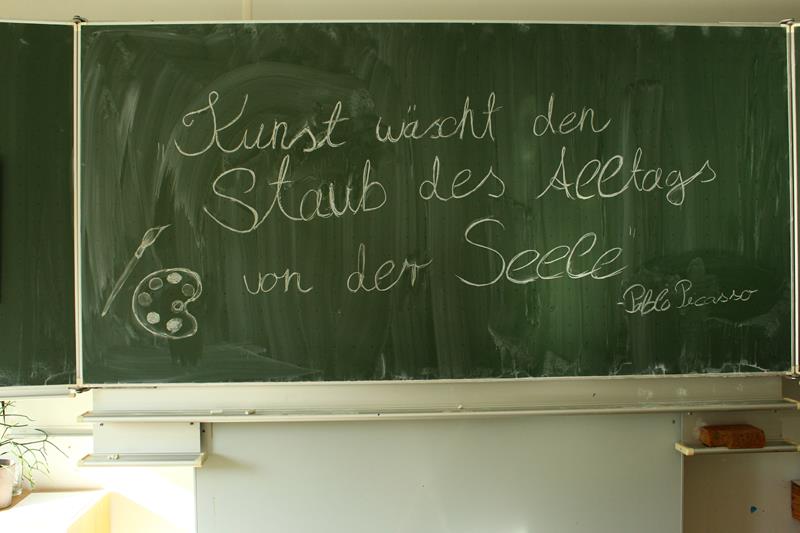 „Kunst wäscht den
Staub des Alltags
von der Seele"
- Pablo Picasso